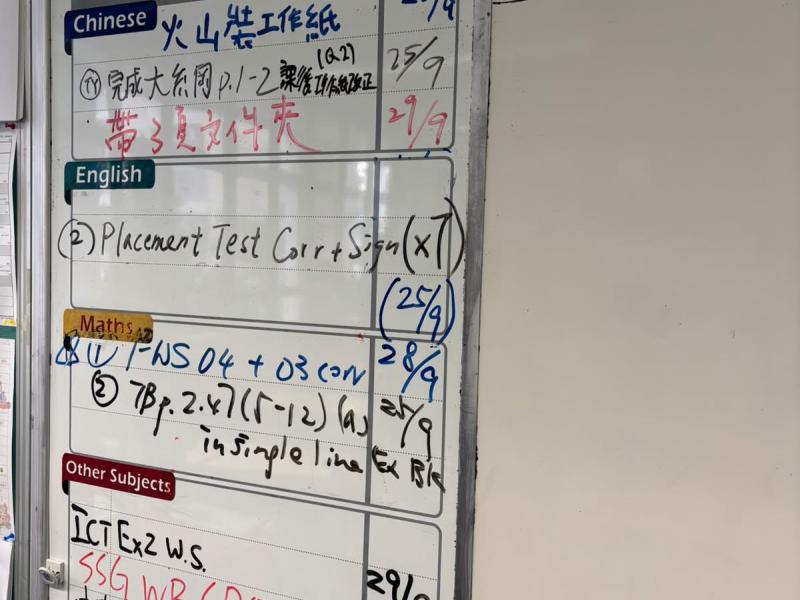 Chinese
火山裝工作紙
(Q.2)
完成大糸岡 p.1-2 課後工作紙改正 25/9
帶3頁文件夾 29/9
English
(2) Placement Test Corr + Sign (x1)
(25/9)
Maths
(1) WS 04 + 03 corr 28/9
(2) TB p. 2.47 (5-12) (as 25/9
in single line Ex Bk
Other Subjects
ICT Ex2 W.S.
SSG WB
29/9